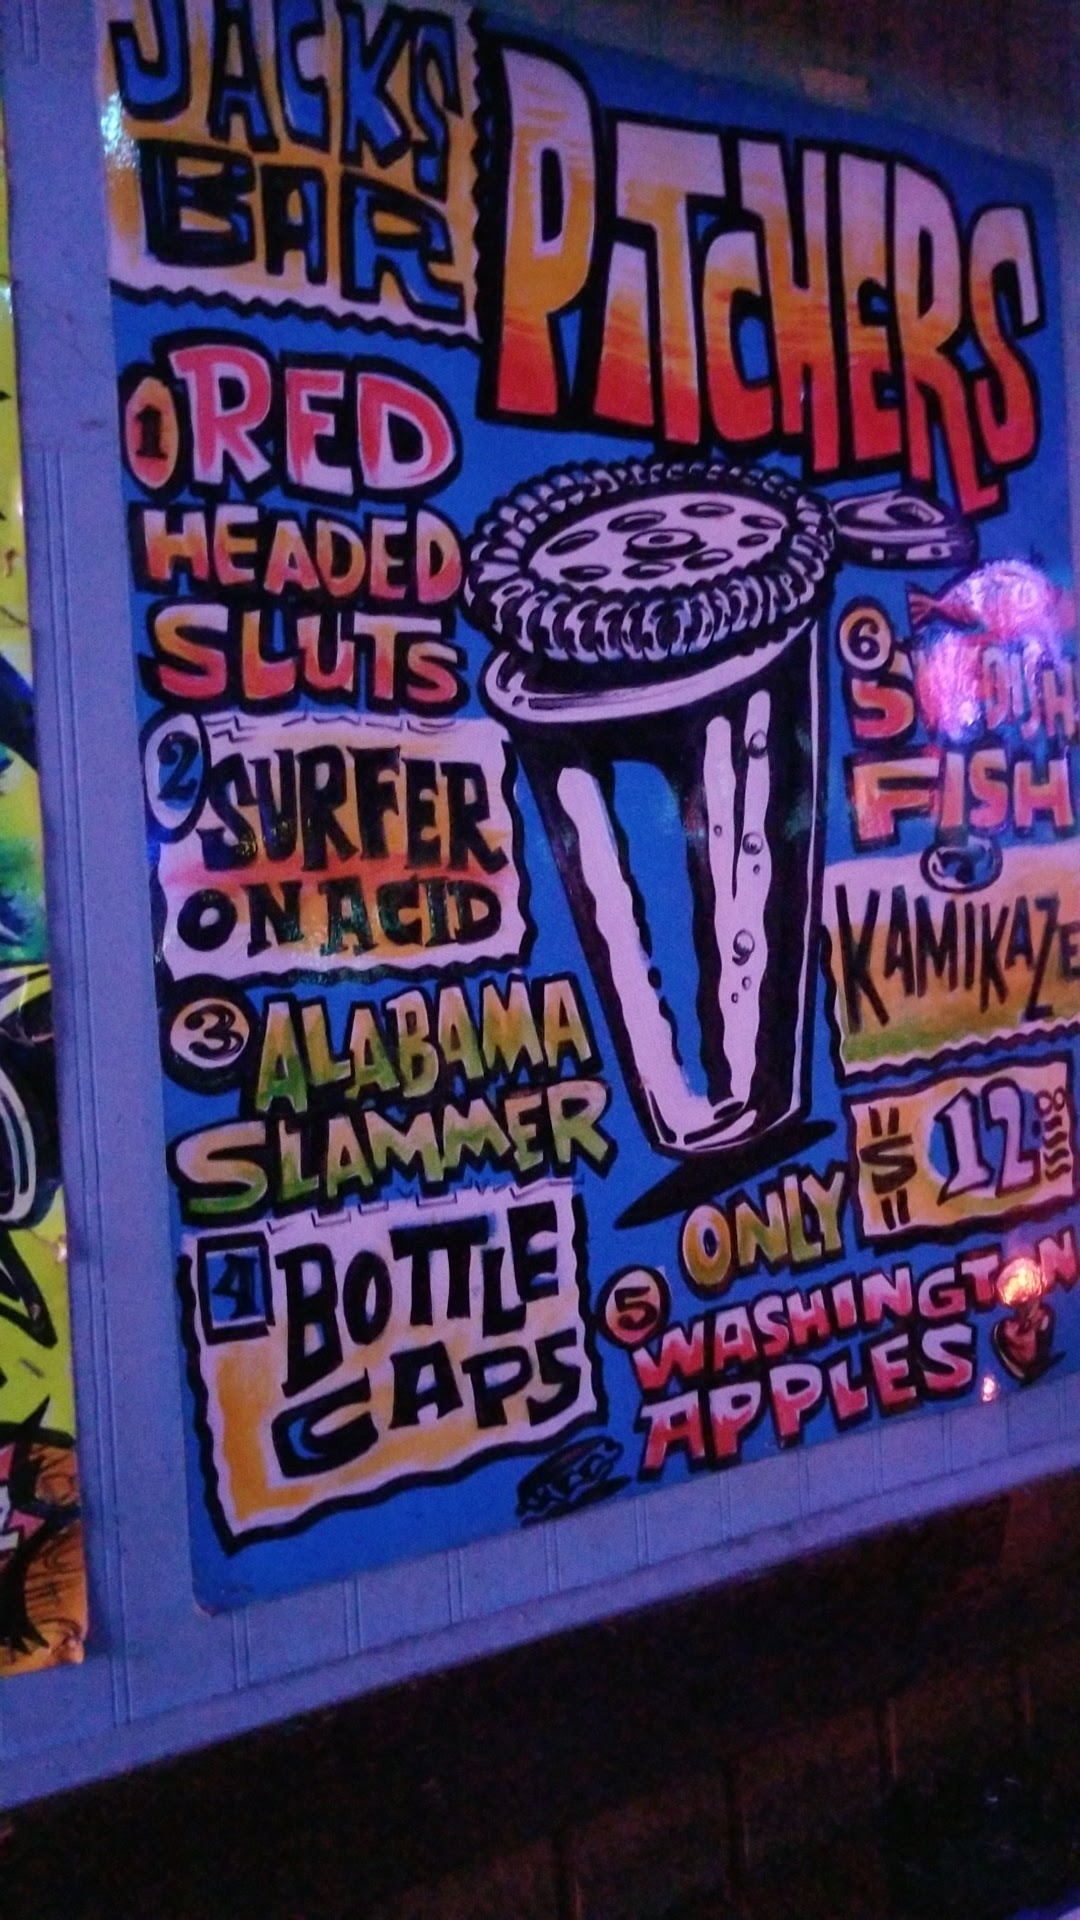 JACKS
BAR
PITCHERS
1 RED
HEADED
SLUTS
2 SURFER
ON ACID
3 ALABAMA
SLAMMER
4 BOTTLE
CAPS
5 WASHINGTON
APPLES
6 SWEDISH
FISH
KAMIKAZE
ONLY $12.00